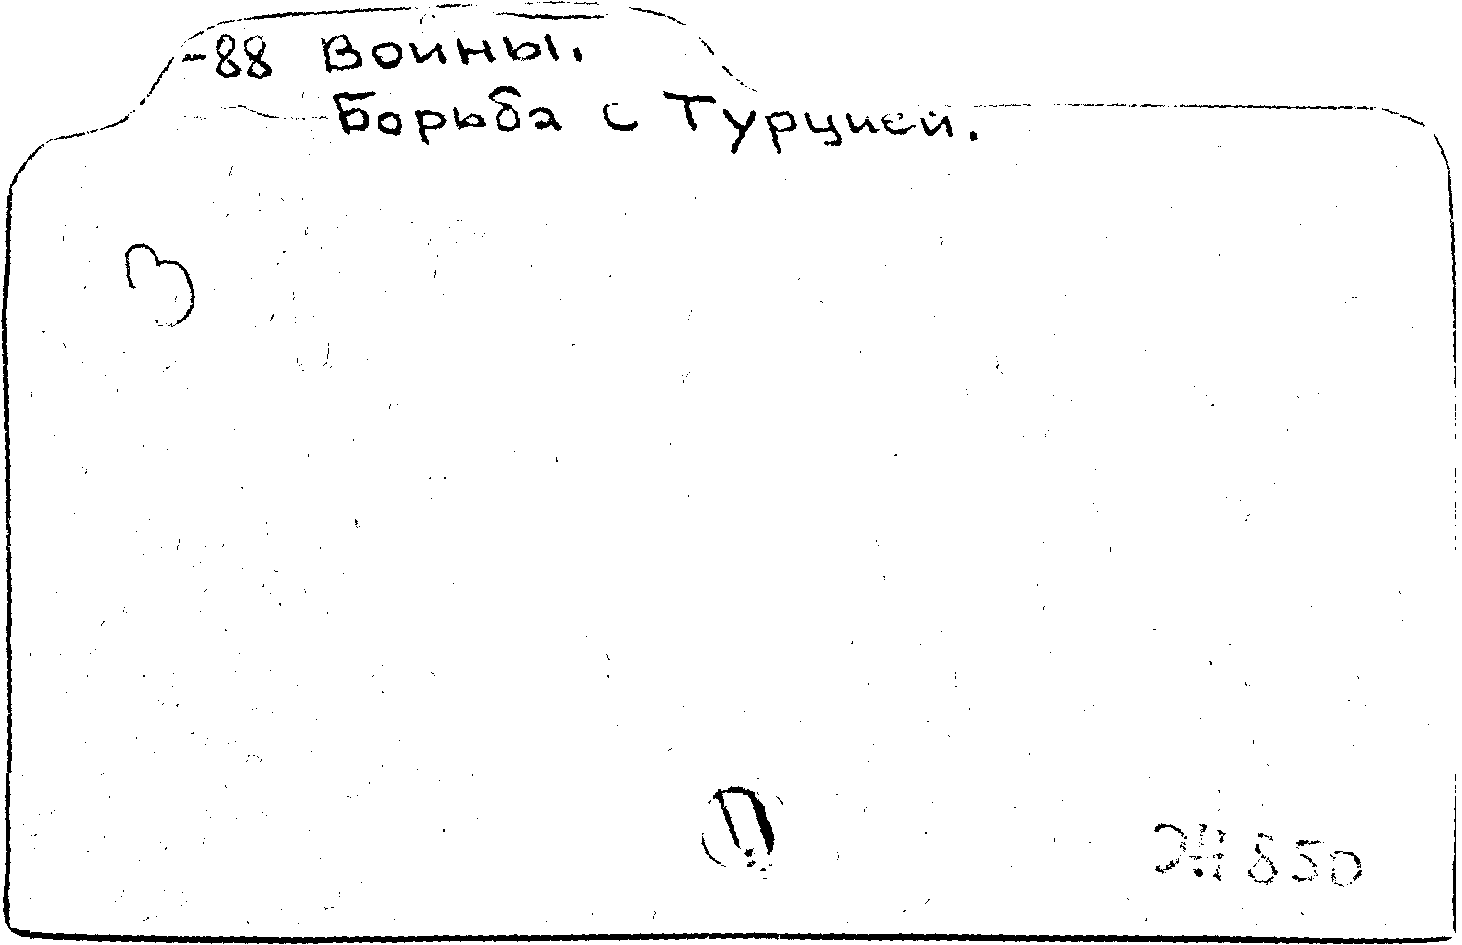 -88 Войны.
Борьба с Турцией.
3
ЭН 850